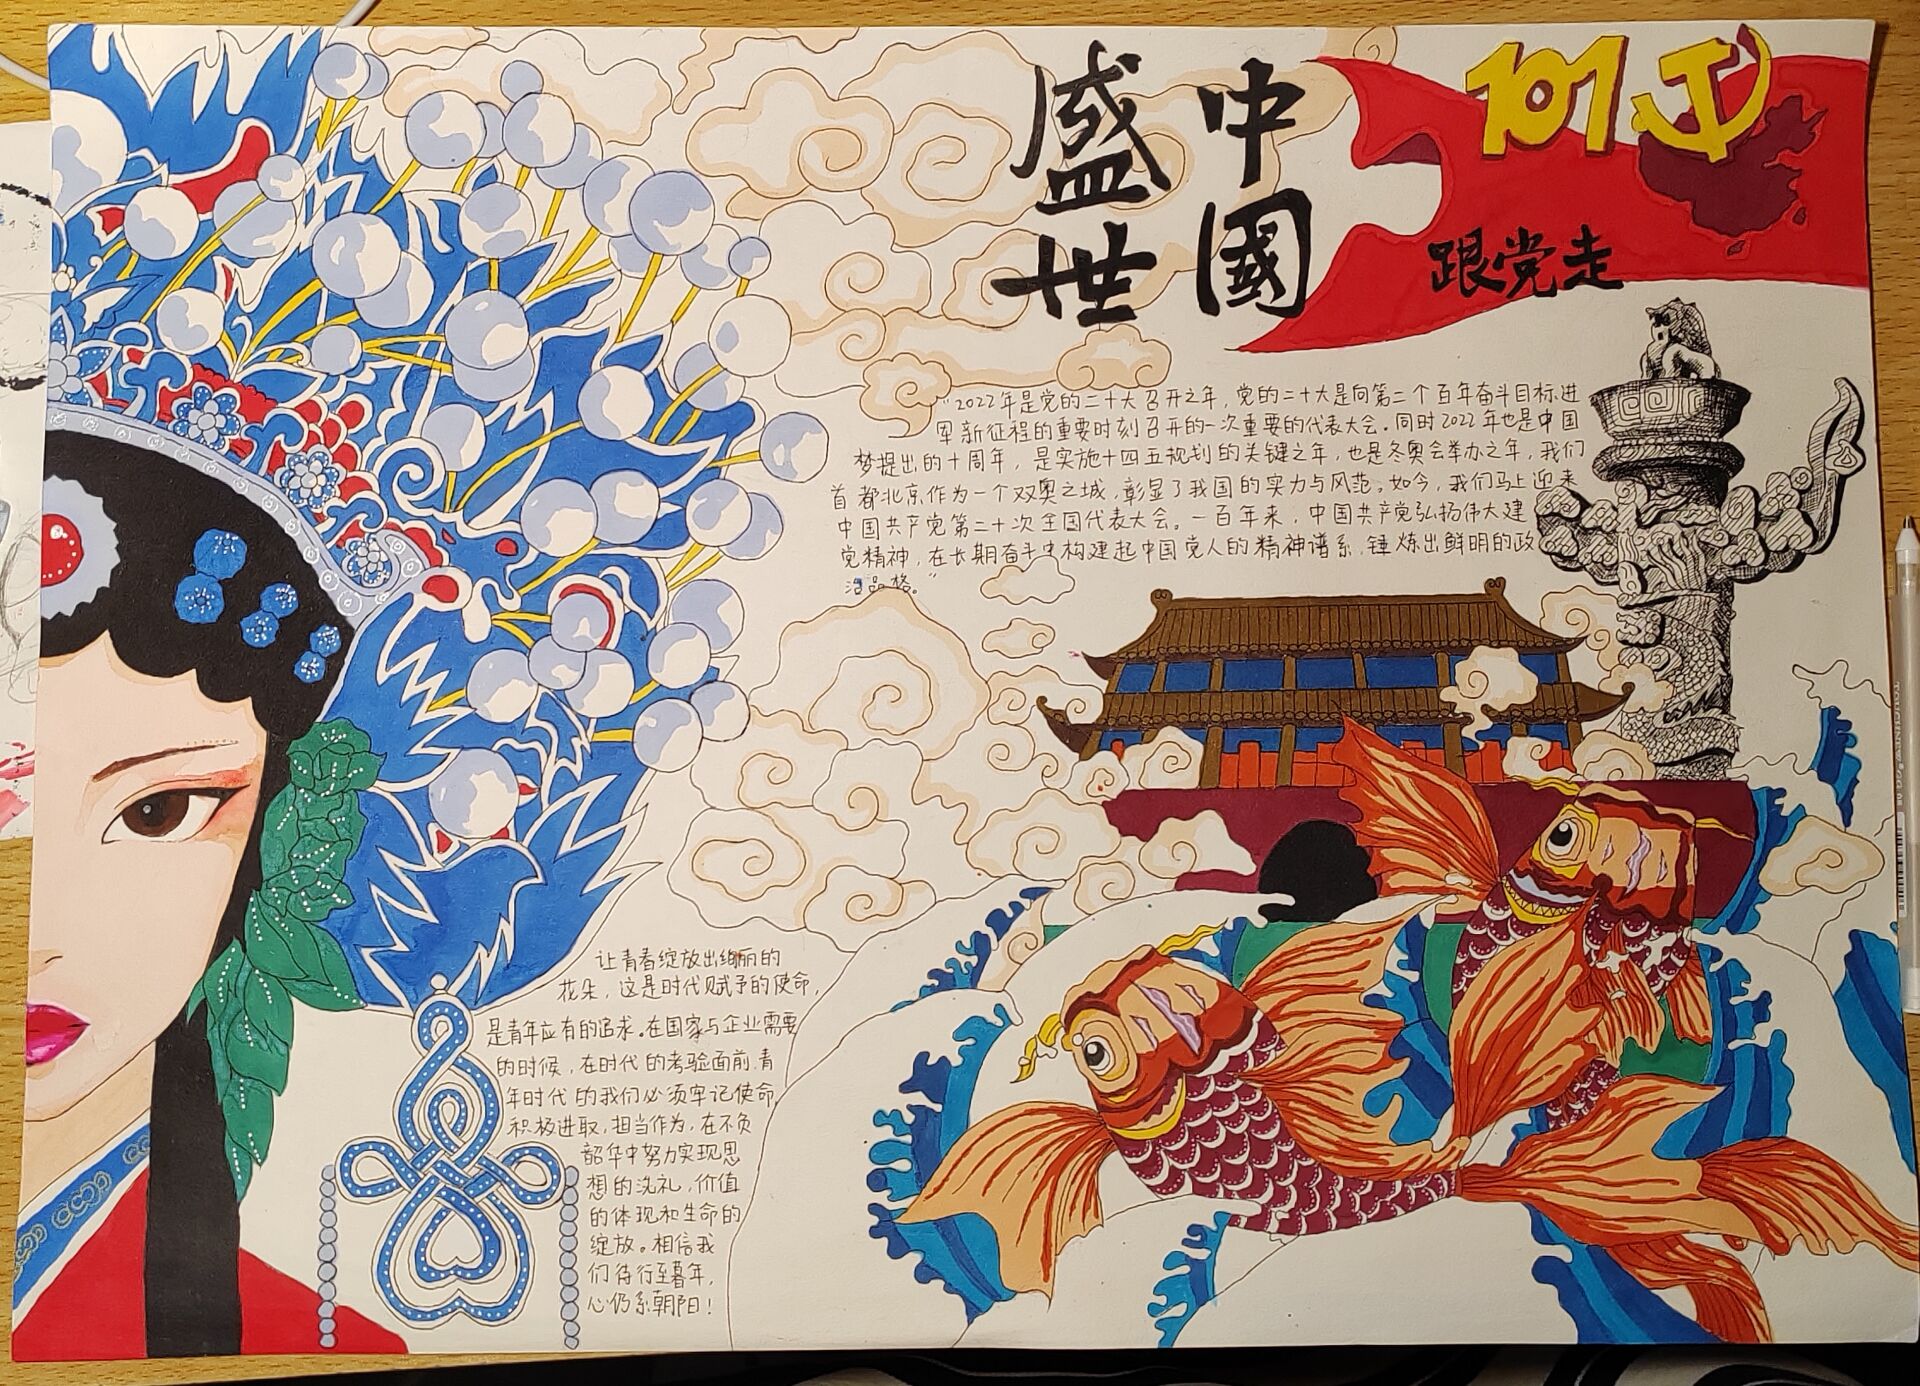 中國
盛世
101
跟党走
"2022年是党的二十大召开之年，党的二十大是向第二个百年奋斗目标进
军新征程的重要时刻召开的一次重要的代表大会。同时2022年也是中国
梦提出的十周年，是实施十四五规划的关键之年，也是冬奥会举办之年，我们
首都北京作为一个双奥之城，彰显了我国的实力与风范。如今，我们马上迎来
中国共产党第二十次全国代表大会。一百年来，中国共产党弘扬伟大建
党精神，在长期奋斗中构建起中国党人的精神谱系，锤炼出鲜明的政
治品格。"
让青春绽放出绚丽的
花朵，这是时代赋予的使命，
是青年应有的追求。在国家与企业需要
的时候，在时代的考验面前，青
年时代的我们必须牢记使命，
积极进取，担当作为，在不负
韶华中努力实现思
想的洗礼，价值
的体现和生命的
绽放。相信我
们待行至暮年，
心仍系朝阳！